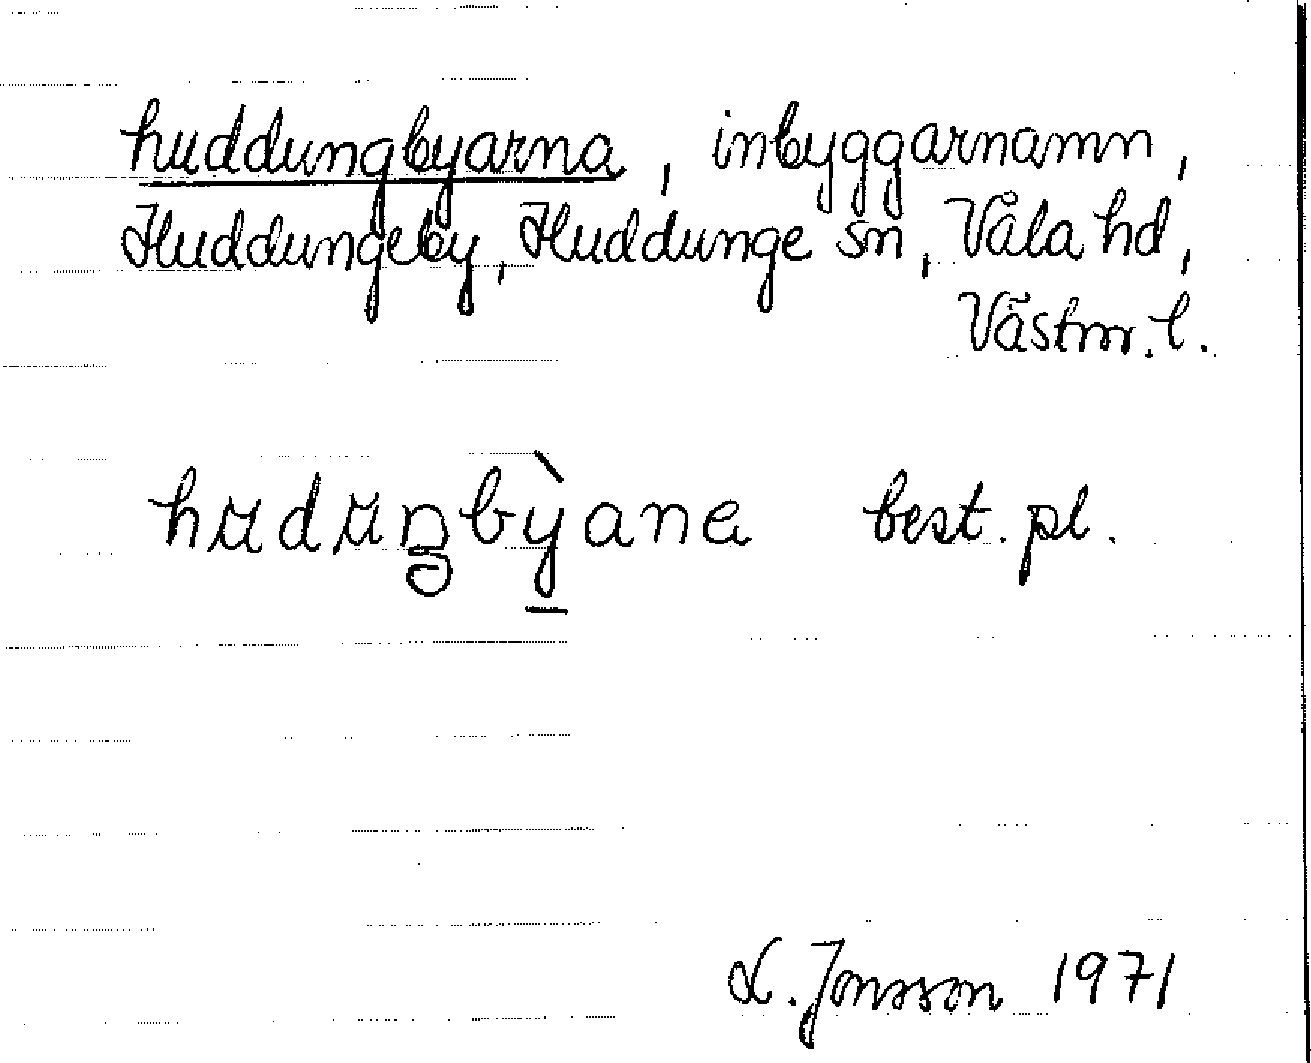 huddungbyarna, inbyggarnamn,
Huddungeby, Huddunge sn, Våla hd,
Västm. l.
huduŋbỳana best. pl.
L. Jonsson 1971